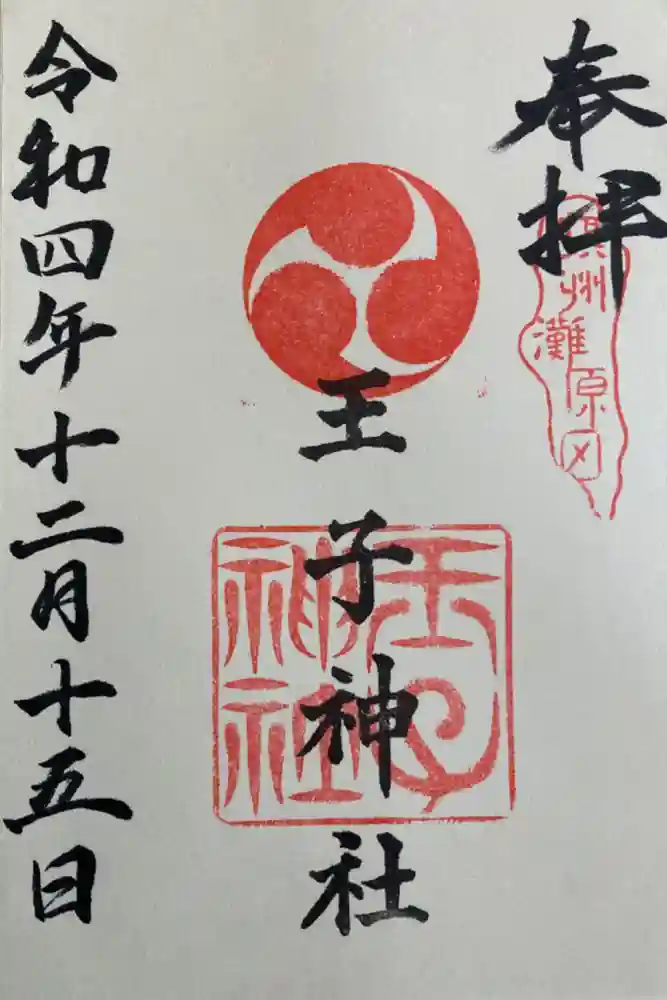 奉拝
奥州灘原〆
王子神社
王子
神社
令和四年十二月十五日